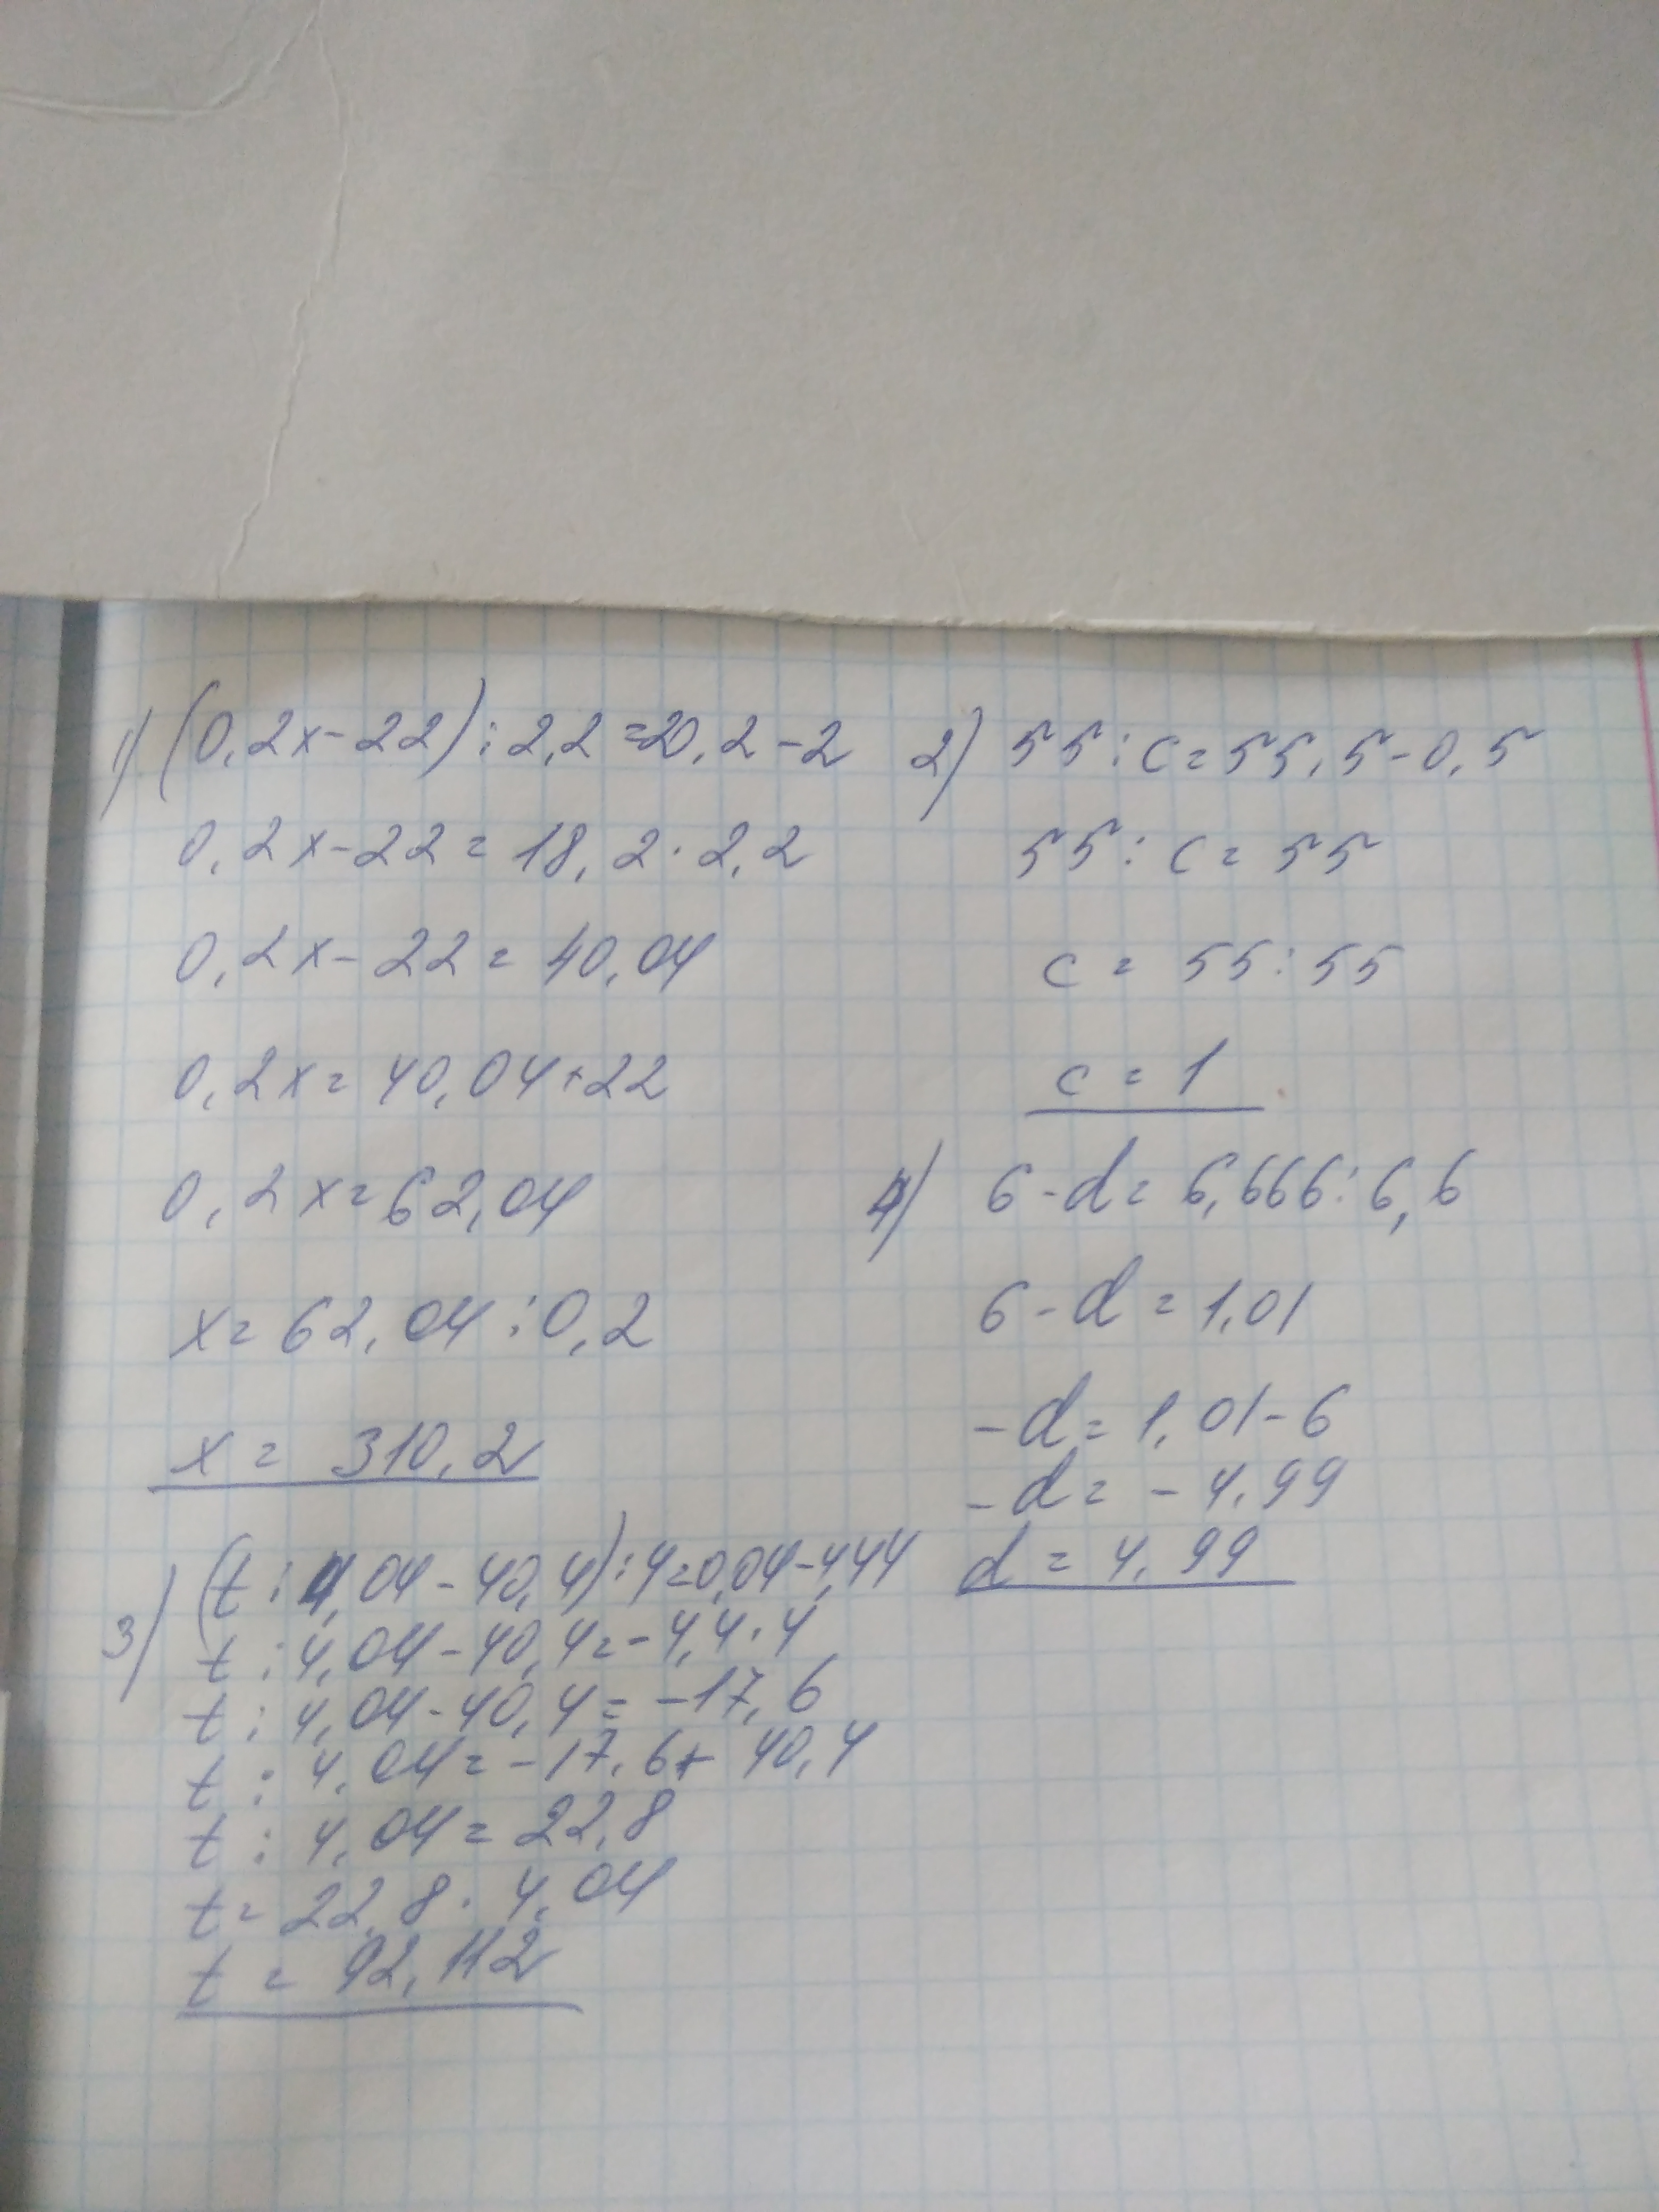 1) (0,2x-22):2,2=20,2-2
0,2x-22=18,2·2,2
0,2x-22=40,04
0,2x=40,04+22
0,2x=62,04
x=62,04:0,2
x=310,2
2) 55:c=55,5-0,5
55:c=55
c=55:55
c=1
3) (t:4,04-40,4):4=0,04-4,44
t:4,04-40,4=-4,4·4
t:4,04-40,4=-17,6
t:4,04=-17,6+40,4
t:4,04=22,8
t=22,8·4,04
t=92,112
4) 6-d=6,666:6,6
6-d=1,01
-d=1,01-6
-d=-4,99
d=4,99